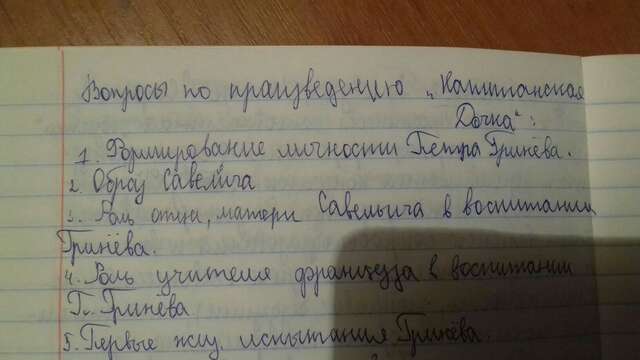 Вопросы по произведению „Капитанская
Дочка“:
1. Формирование личности Петра Гринёва.
2. Образ Савелича
3. Роль отца, матери Савельича в воспитании
Гринёва.
4. Роль учителя француза в воспитании
П. Гринёва
5. Первые жиз. испытания Гринёва.